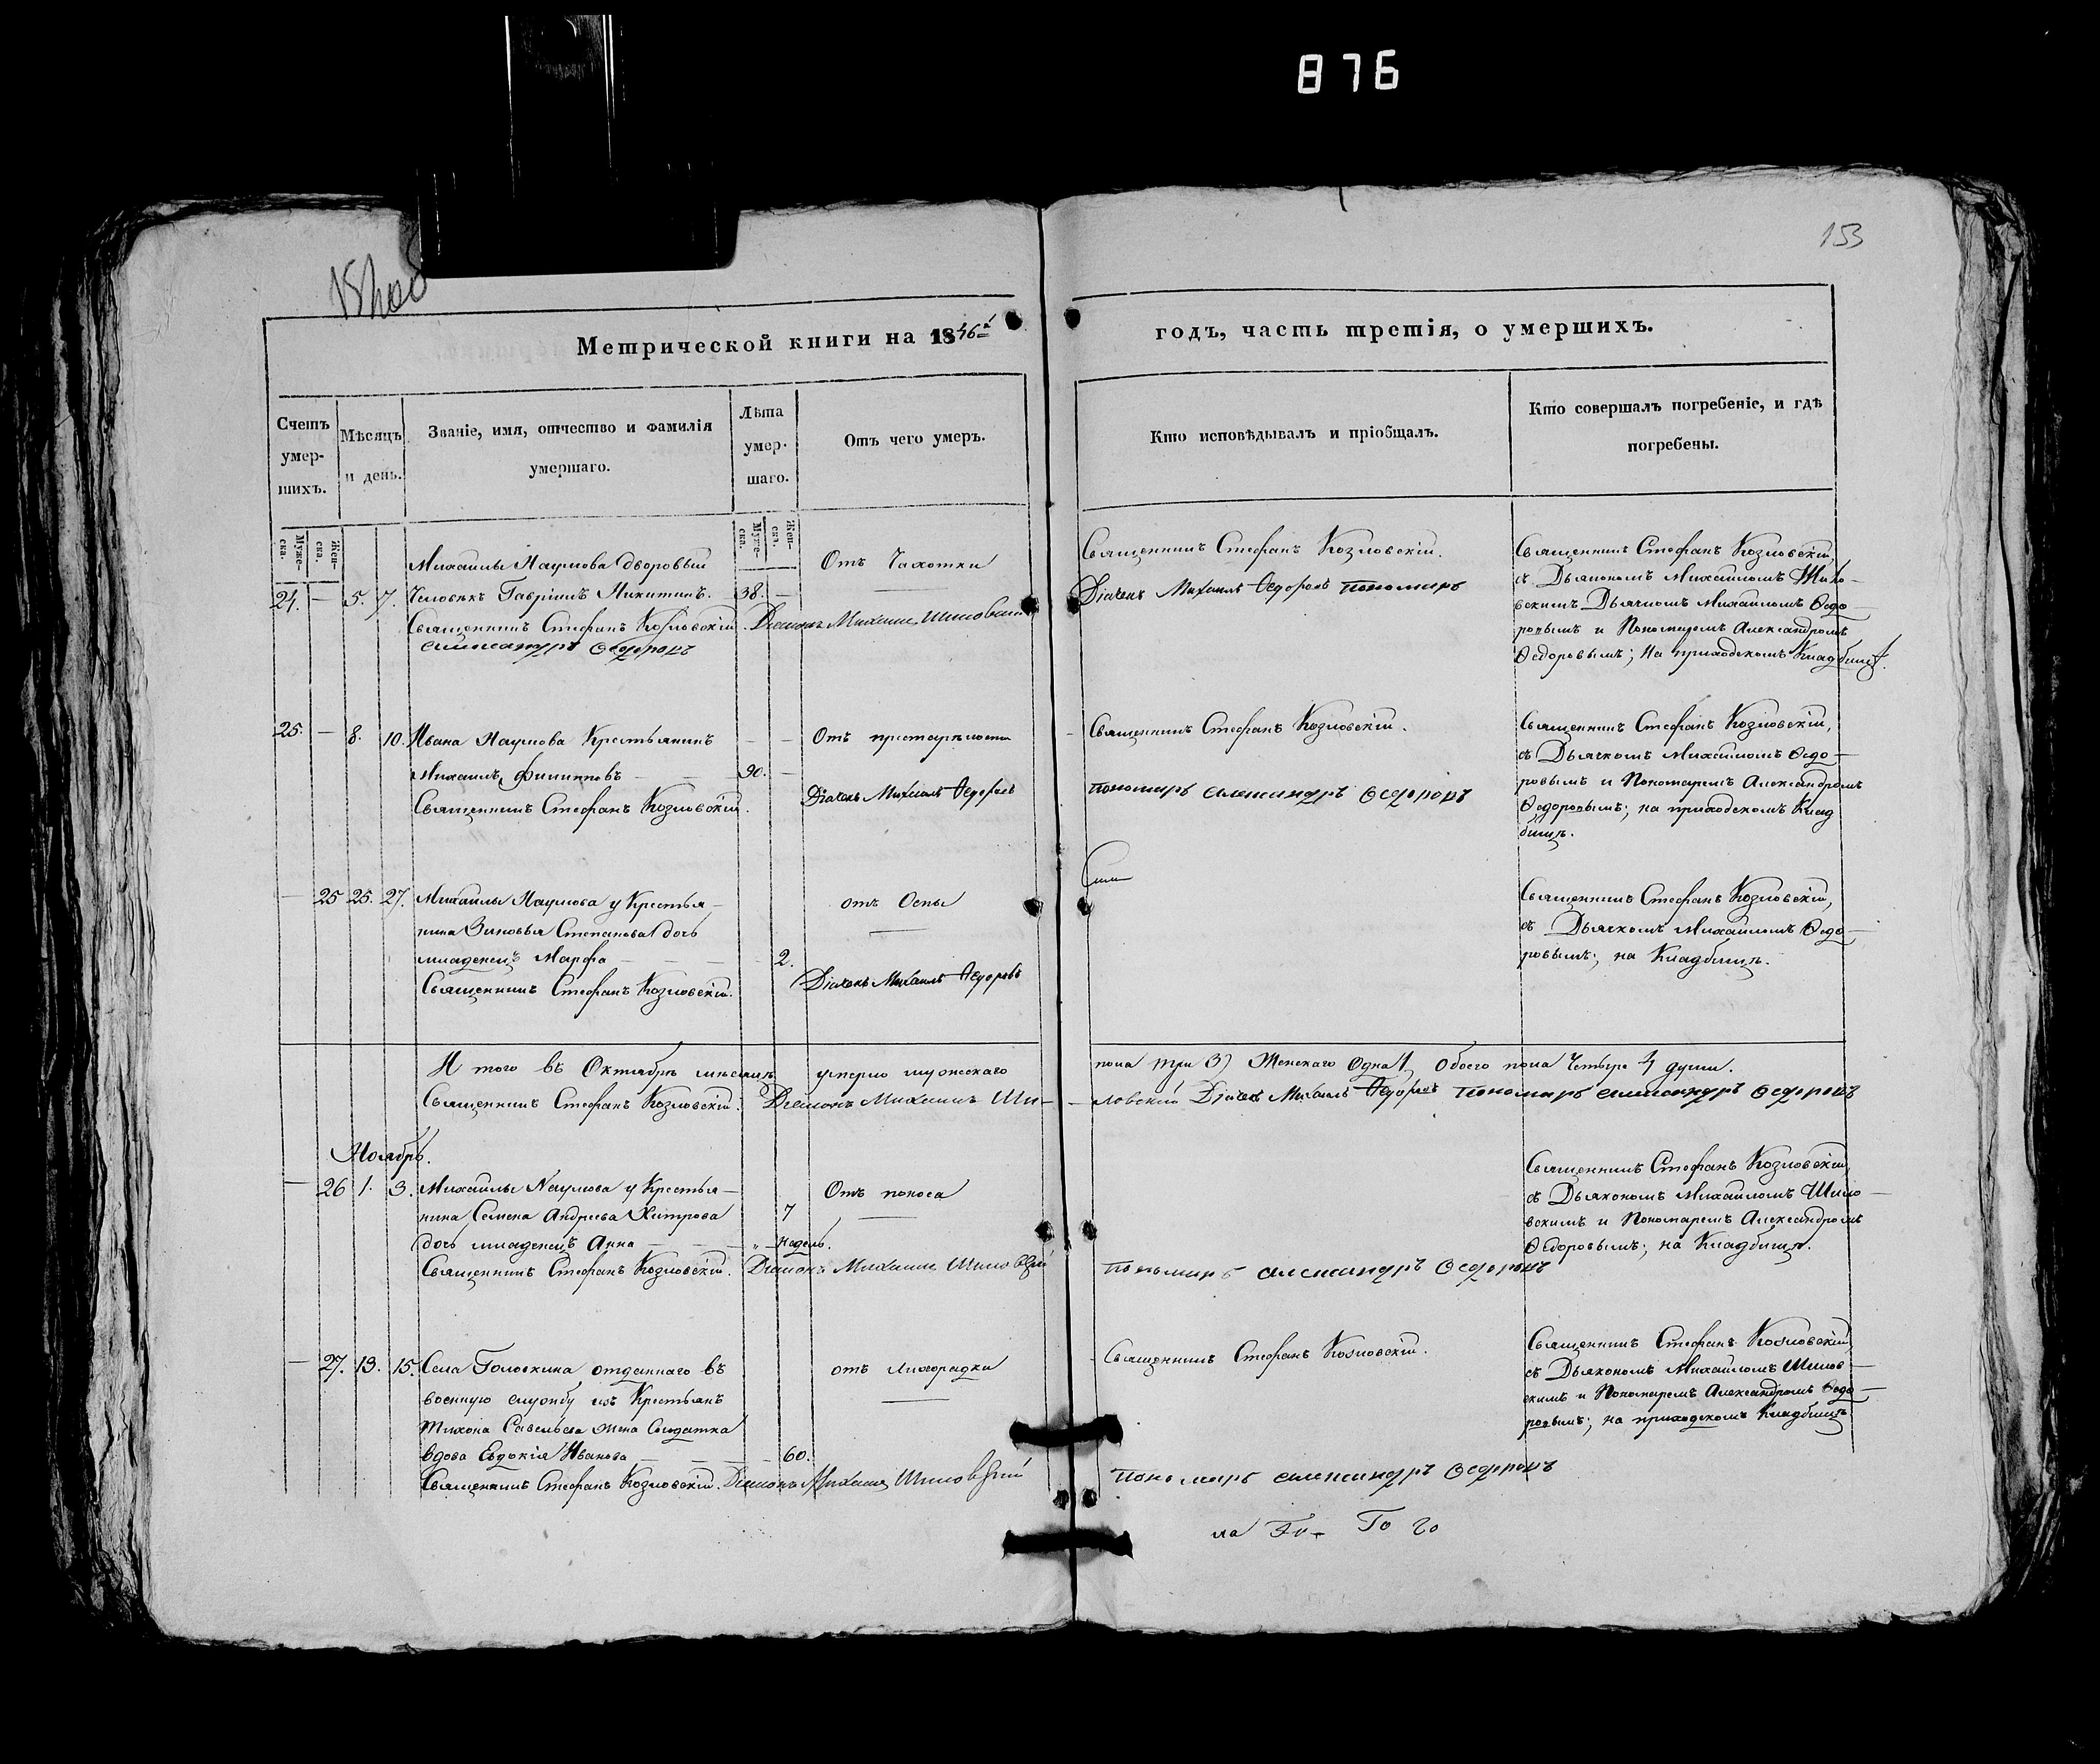 876
153
Метрической книги на 1846й
годъ, часть третія, о умершихъ.
Счетъ умер-шихъ.
Мѣсяцъ и день.
Званіе, имя, отчество и фамилія умершаго.
Лѣта умер-шаго.
Отъ чего умеръ.
Кто исповѣдывалъ и пріобщалъ.
Кто совершалъ погребеніе, и гдѣ погребены.
Муже-ска.
Жен-ска.
Муже-ска.
Жен-ска.
Михаилы Наумова дворовый
24. — 5. 7. Человѣкъ Гавріилъ Никитинъ. 38. —
Отъ Чахотки
Священникъ Стефанъ Козловскій. Діаконъ Михаилъ Шиловскій
Александръ Ѳедоровъ
Священникъ Стефанъ Козловскій.
Дьячекъ Михаилъ Ѳедоровъ Пономарь
Священникъ Стефанъ Козловскій,
съ Дьякономъ Михаиломъ Шило-
вскимъ Дьячкомъ Михаиломъ Ѳедо-
ровымъ и Пономаремъ Александромъ
Ѳедоровымъ; На приходскомъ Кладбищѣ.
25. — 8. 10. Ивана Наумова Крестьянинъ
Михаилъ Филипповъ — 90. —
Отъ престарѣлости
Священникъ Стефанъ Козловскій.
Дьячекъ Михаилъ Ѳедоровъ
Священникъ Стефанъ Козловскій.
Пономарь Александръ Ѳедоровъ
Священникъ Стефанъ Козловскій,
съ Дьячкомъ Михаиломъ Ѳедо-
ровымъ и Пономаремъ Александромъ
Ѳедоровымъ; на приходскомъ Клад
бищѣ.
— 25 25. 27. Михаилы Наумова у Крестья-
нина Зиновья Степанова дочь
младенецъ Марфа — 2.
отъ Оспы
Священникъ Стефанъ Козловскій.
Дьячекъ Михаилъ Ѳедоровъ
Священникъ Стефанъ Козловскій,
съ Дьячкомъ Михаиломъ Ѳедо-
ровымъ; на Кладбищѣ.
И того въ Октябрѣ мѣсяцѣ умерло мужескаго
пола три 3) Женскаго одна 1, Обоего пола Четыре 4 души.
Священникъ Стефанъ Козловскій. Діаконъ Михаилъ Ши-
ловскій Дьячекъ Михаилъ Ѳедоровъ Пономарь Александръ Ѳедоровъ
Ноябрь.
— 26 1. 3. Михаилы Наумова у Крестья-
нина Семена Андреева Хитрова 7
дочь младенецъ Анна — недѣль.
Отъ поноса
Священникъ Стефанъ Козловскій. Діаконъ Михаилъ Шиловскій
Пономарь Александръ Ѳедоровъ
Священникъ Стефанъ Козловскій,
съ Дьякономъ Михаиломъ Шило-
вскимъ и Пономаремъ Александромъ
Ѳедоровымъ; на Кладбищѣ.
— 27. 13. 15. Села Головкина отданнаго въ
военную службу изъ Крестьянъ
Тихона Савельева жена Солдатка
вдова Евдокія Иванова — 60.
отъ Лихорадки
Священникъ Стефанъ Козловскій. Діаконъ Михаилъ Шиловскій
Священникъ Стефанъ Козловскій.
Пономарь Александръ Ѳедоровъ
Священникъ Стефанъ Козловскій
съ Дьякономъ Михаиломъ Шилов-
скимъ и Пономаремъ Александромъ Ѳедо-
ровымъ; на приходскомъ Кладбищѣ